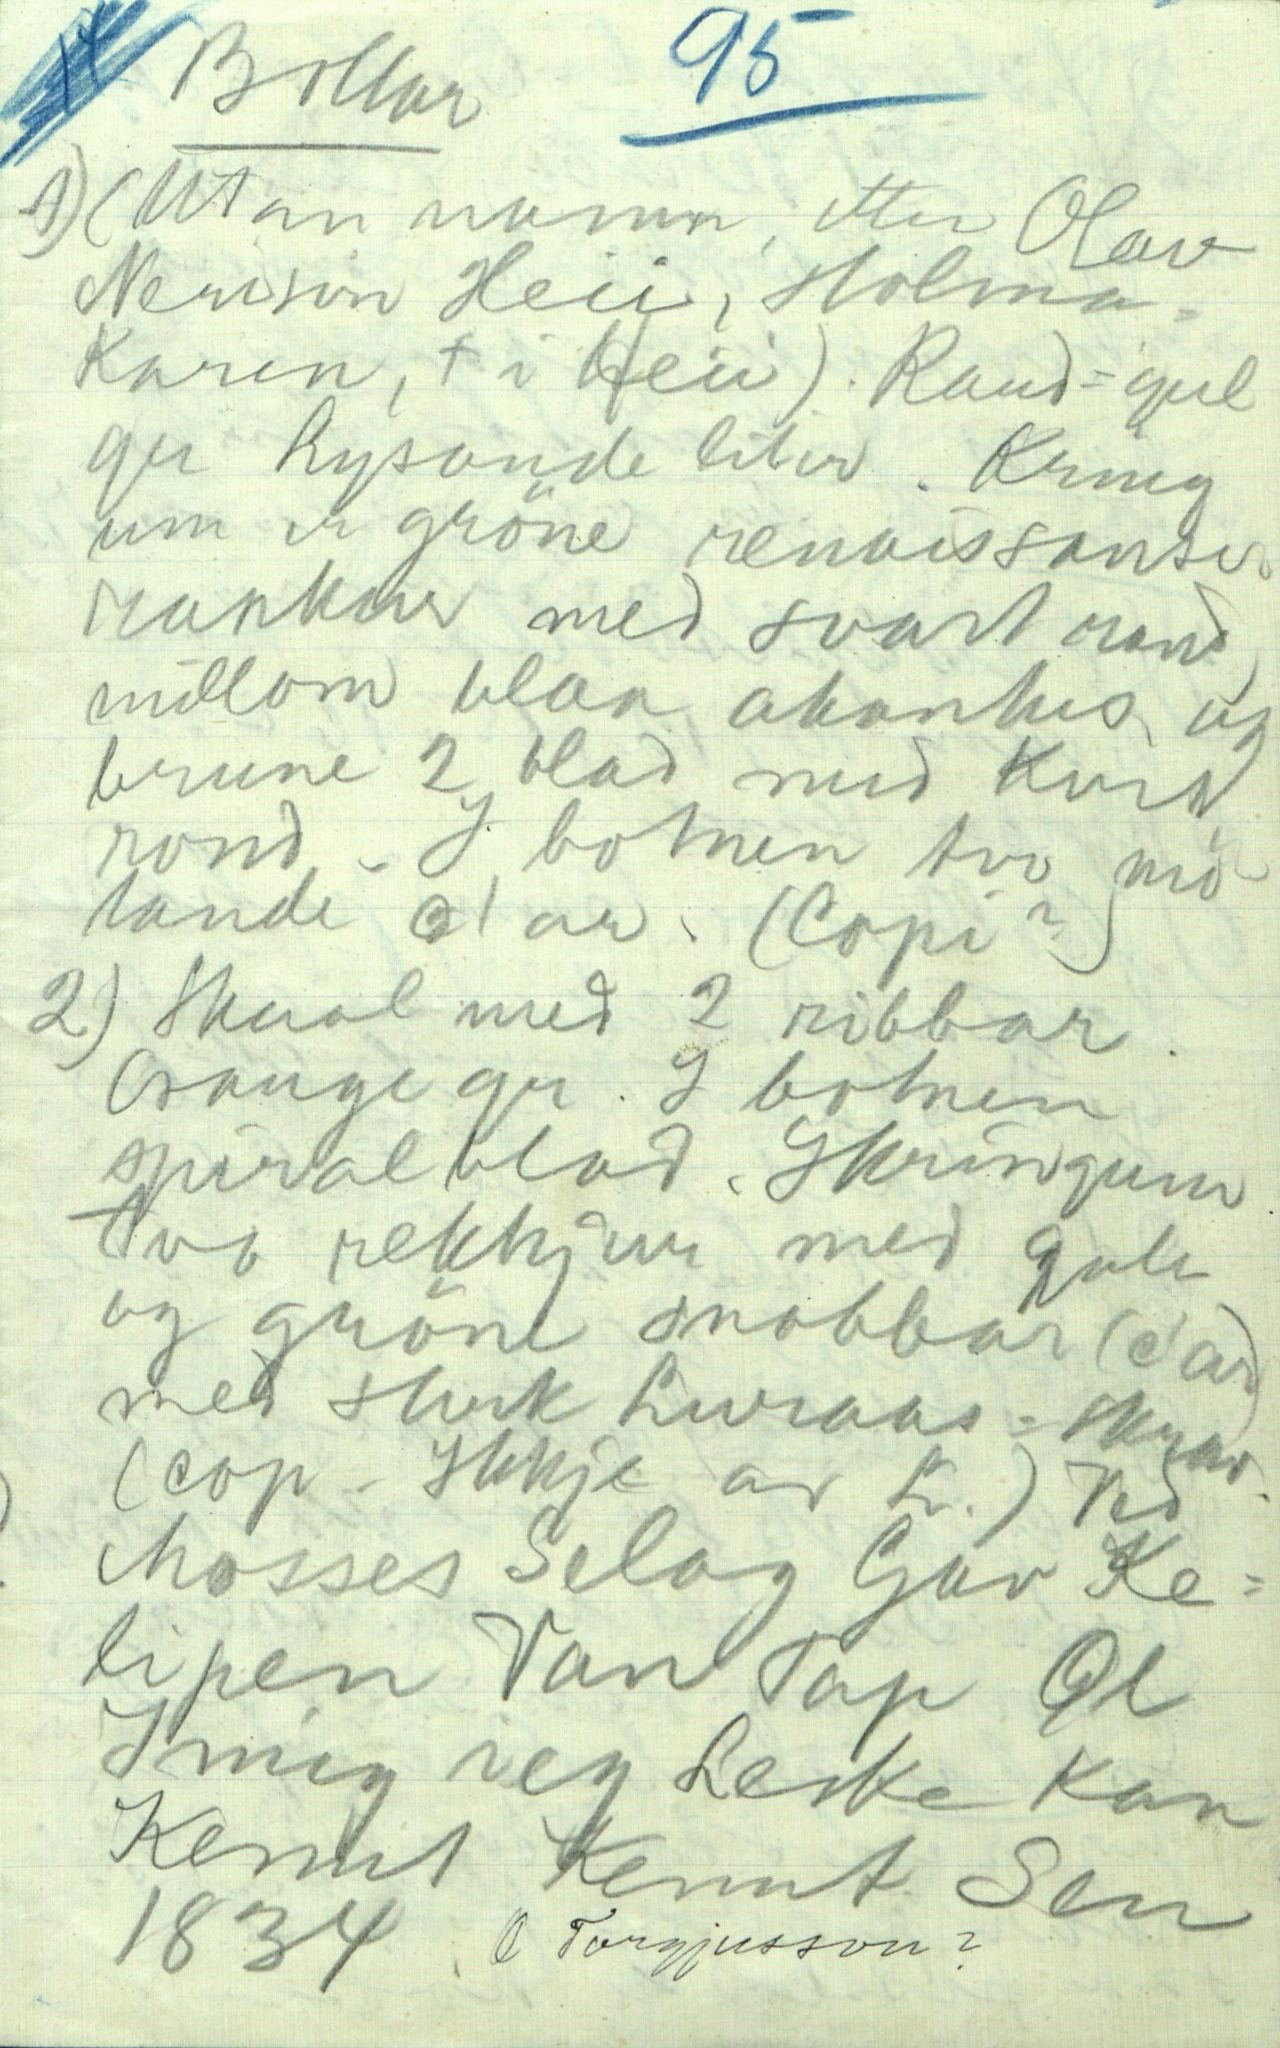 Bollar 95
1) (Utan namn, etter Olav
Nerison Heii, Holma-
Karen, + i Heii). Raud-gul
gr lysande liter. Kring
um er gröne renaissanse
rankur med svart rand
millom blaa akantus og
brune 2 blad med kvit
rond. I botnen two mö
tande c'ar. (Copi?)
2) Skaal med 2 ribbar.
Orange gr. I botnen
spiralblad. Ikringum
tvo rekkjur med gule
og gröne snabbar (c'ar)
med sterk Luraas-skrav.
(cop. Ikkje av L.) Ved
Mosses Selag Gav Ke=
lipen Van Tap Ol
I mig ieg Leske Kan
Kennt Kennt Sen
1834. O Torgjusson?